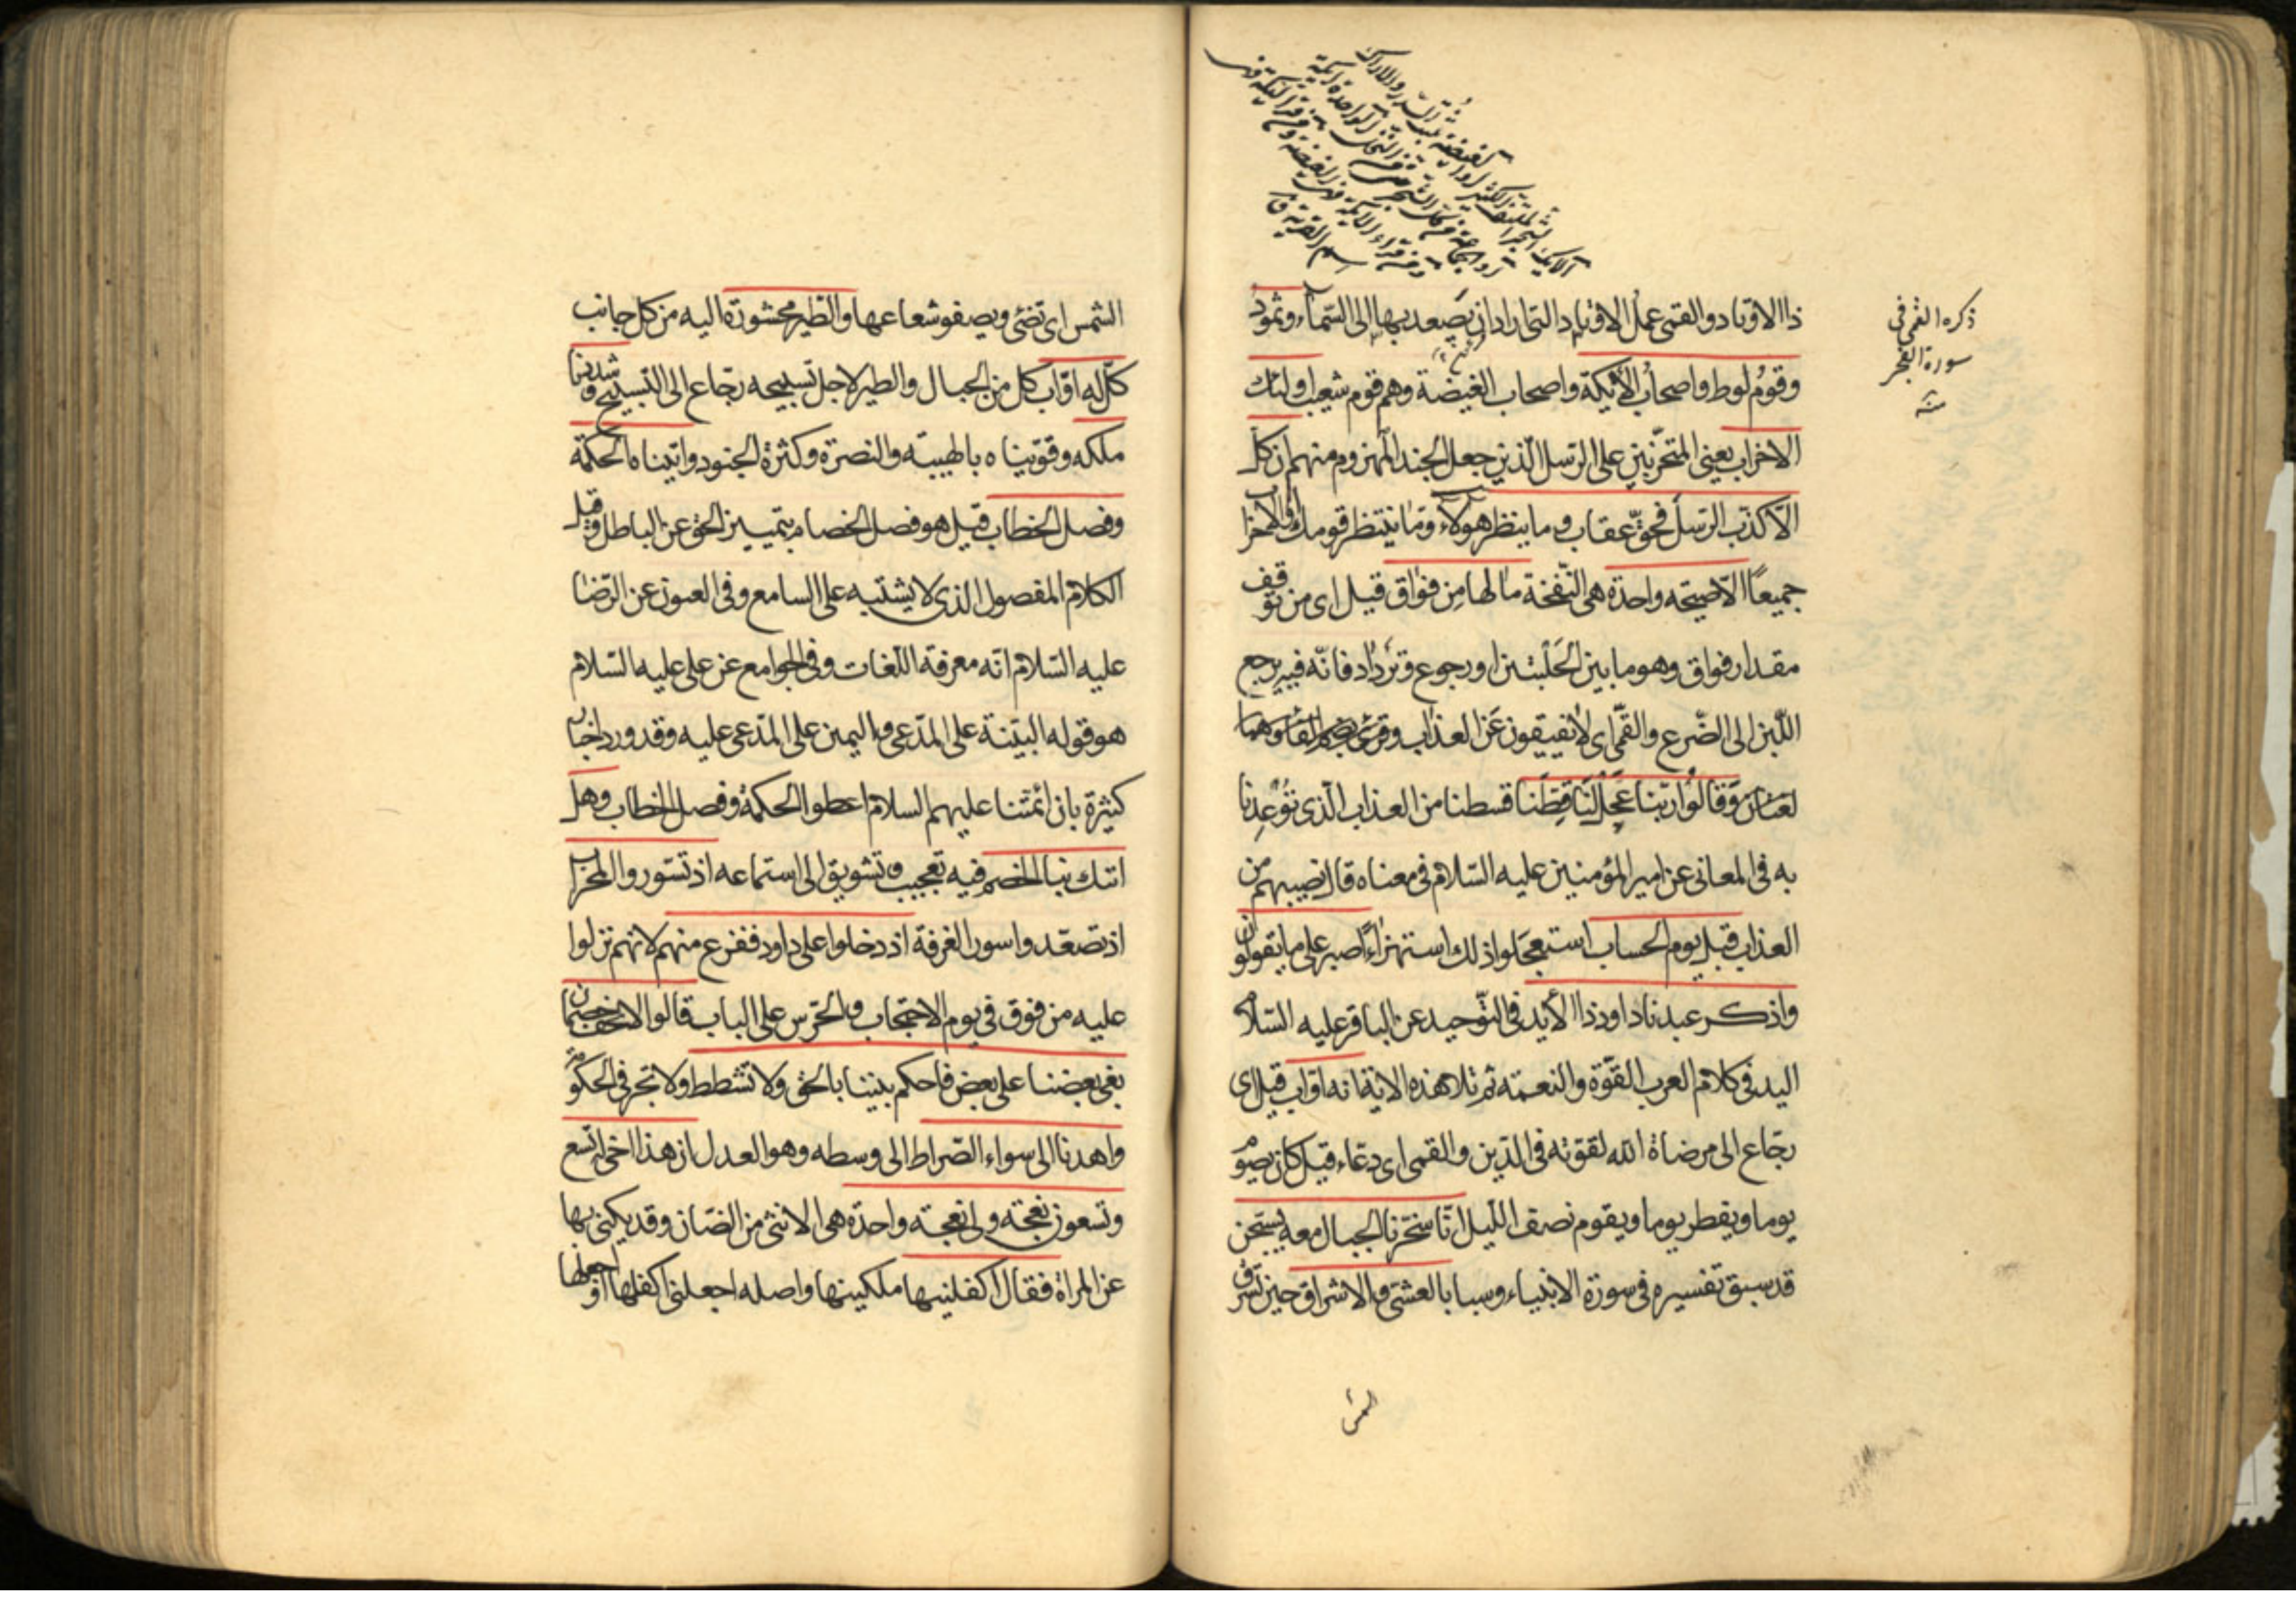 ذا الاوتاد والقمى عمل الاوتاد التى اراد ان يصعد بها الى السماء وثمود
وقوم لوط واصحاب الأيكة واصحاب الغيضة وهم قوم شعيب اولئك
الاحزاب يعنى المتحزبين على الرسل الذين جعل الجند المهزوم منهم ان كل
الا كذب الرسل فحق عقاب وما ينظر هؤلاء وما ينتظر قومك او الاحزاب
جميعا الا صيحة واحدة هى النفخة ما لها من فواق قيل اى من توقف
مقدار فواق وهو ما بين الحلبتين او رجوع وترداد فانه فيه يرجع
اللبن الى الضرع والقمى اى لا يفيقون عن العذاب وقرئ بضم الفاء وهما
لغتان وقالوا ربنا عجل لنا قطنا قسطنا من العذاب الذى توعدنا
به فى المعانى عن امير المؤمنين عليه السلام فى معناه قال نصيبهم من
العذاب قبل يوم الحساب استعجلوا ذلك استهزاء اصبر على ما يقولون
واذكر عبدنا داود ذا الأيد فى التوحيد عن الباقر عليه السلام
اليد فى كلام العرب القوة والنعمة ثم تلا هذه الاية انه اواب قيل اى
رجاع الى مرضاة الله لقوته فى الدين والقمى اى دعاء قيل كان يصوم
يوما ويفطر يوما ويقوم نصف الليل انا سخرنا الجبال معه يسبحن
قد سبق تفسيره فى سورة الانبياء وسبا بالعشى والاشراق حين تشرق
الشمس
ذكره القمى فى
سورة الفجر
منه
الشمس اى تضئ ويصفو شعاعها والطير محشورة اليه من كل جانب
كل له اواب كل من الجبال والطير لاجل تسبيحه رجاع الى التسبيح وشددنا
ملكه وقويناه بالهيبة والنصرة وكثرة الجنود واتيناه الحكمة
وفصل الخطاب قيل هو فصل الخصام بتمييز الحق عن الباطل وقيل
الكلام المفصول الذى لا يشتبه على السامع وفى العيون عن الرضا
عليه السلام انه معرفة اللغات وفى الجوامع عن على عليه السلام
هو قوله البينة على المدعى واليمين على المدعى عليه وقد ورد اخبار
كثيرة بان ائمتنا عليهم السلام اعطوا الحكمة وفصل الخطاب وهل
اتيك نبا الخصم فيه تعجيب وتشويق الى استماعه اذ تسوروا المحراب
اذ تصعدوا سور الغرفة اذ دخلوا على داود ففزع منهم لانهم نزلوا
عليه من فوق فى يوم الاحتجاب والحرس على الباب قالوا لا تخف خصمان
بغى بعضنا على بعض فاحكم بيننا بالحق ولا تشطط ولا تجر فى الحكومة
واهدنا الى سواء الصراط الى وسطه وهو العدل ان هذا اخى له تسع
وتسعون نعجة ولى نعجة واحدة هى الانثى من الضان وقد يكنى بها
عن المراة فقال اكفلنيها ملكنيها واصله اجعلنى اكفلها او اجعلها